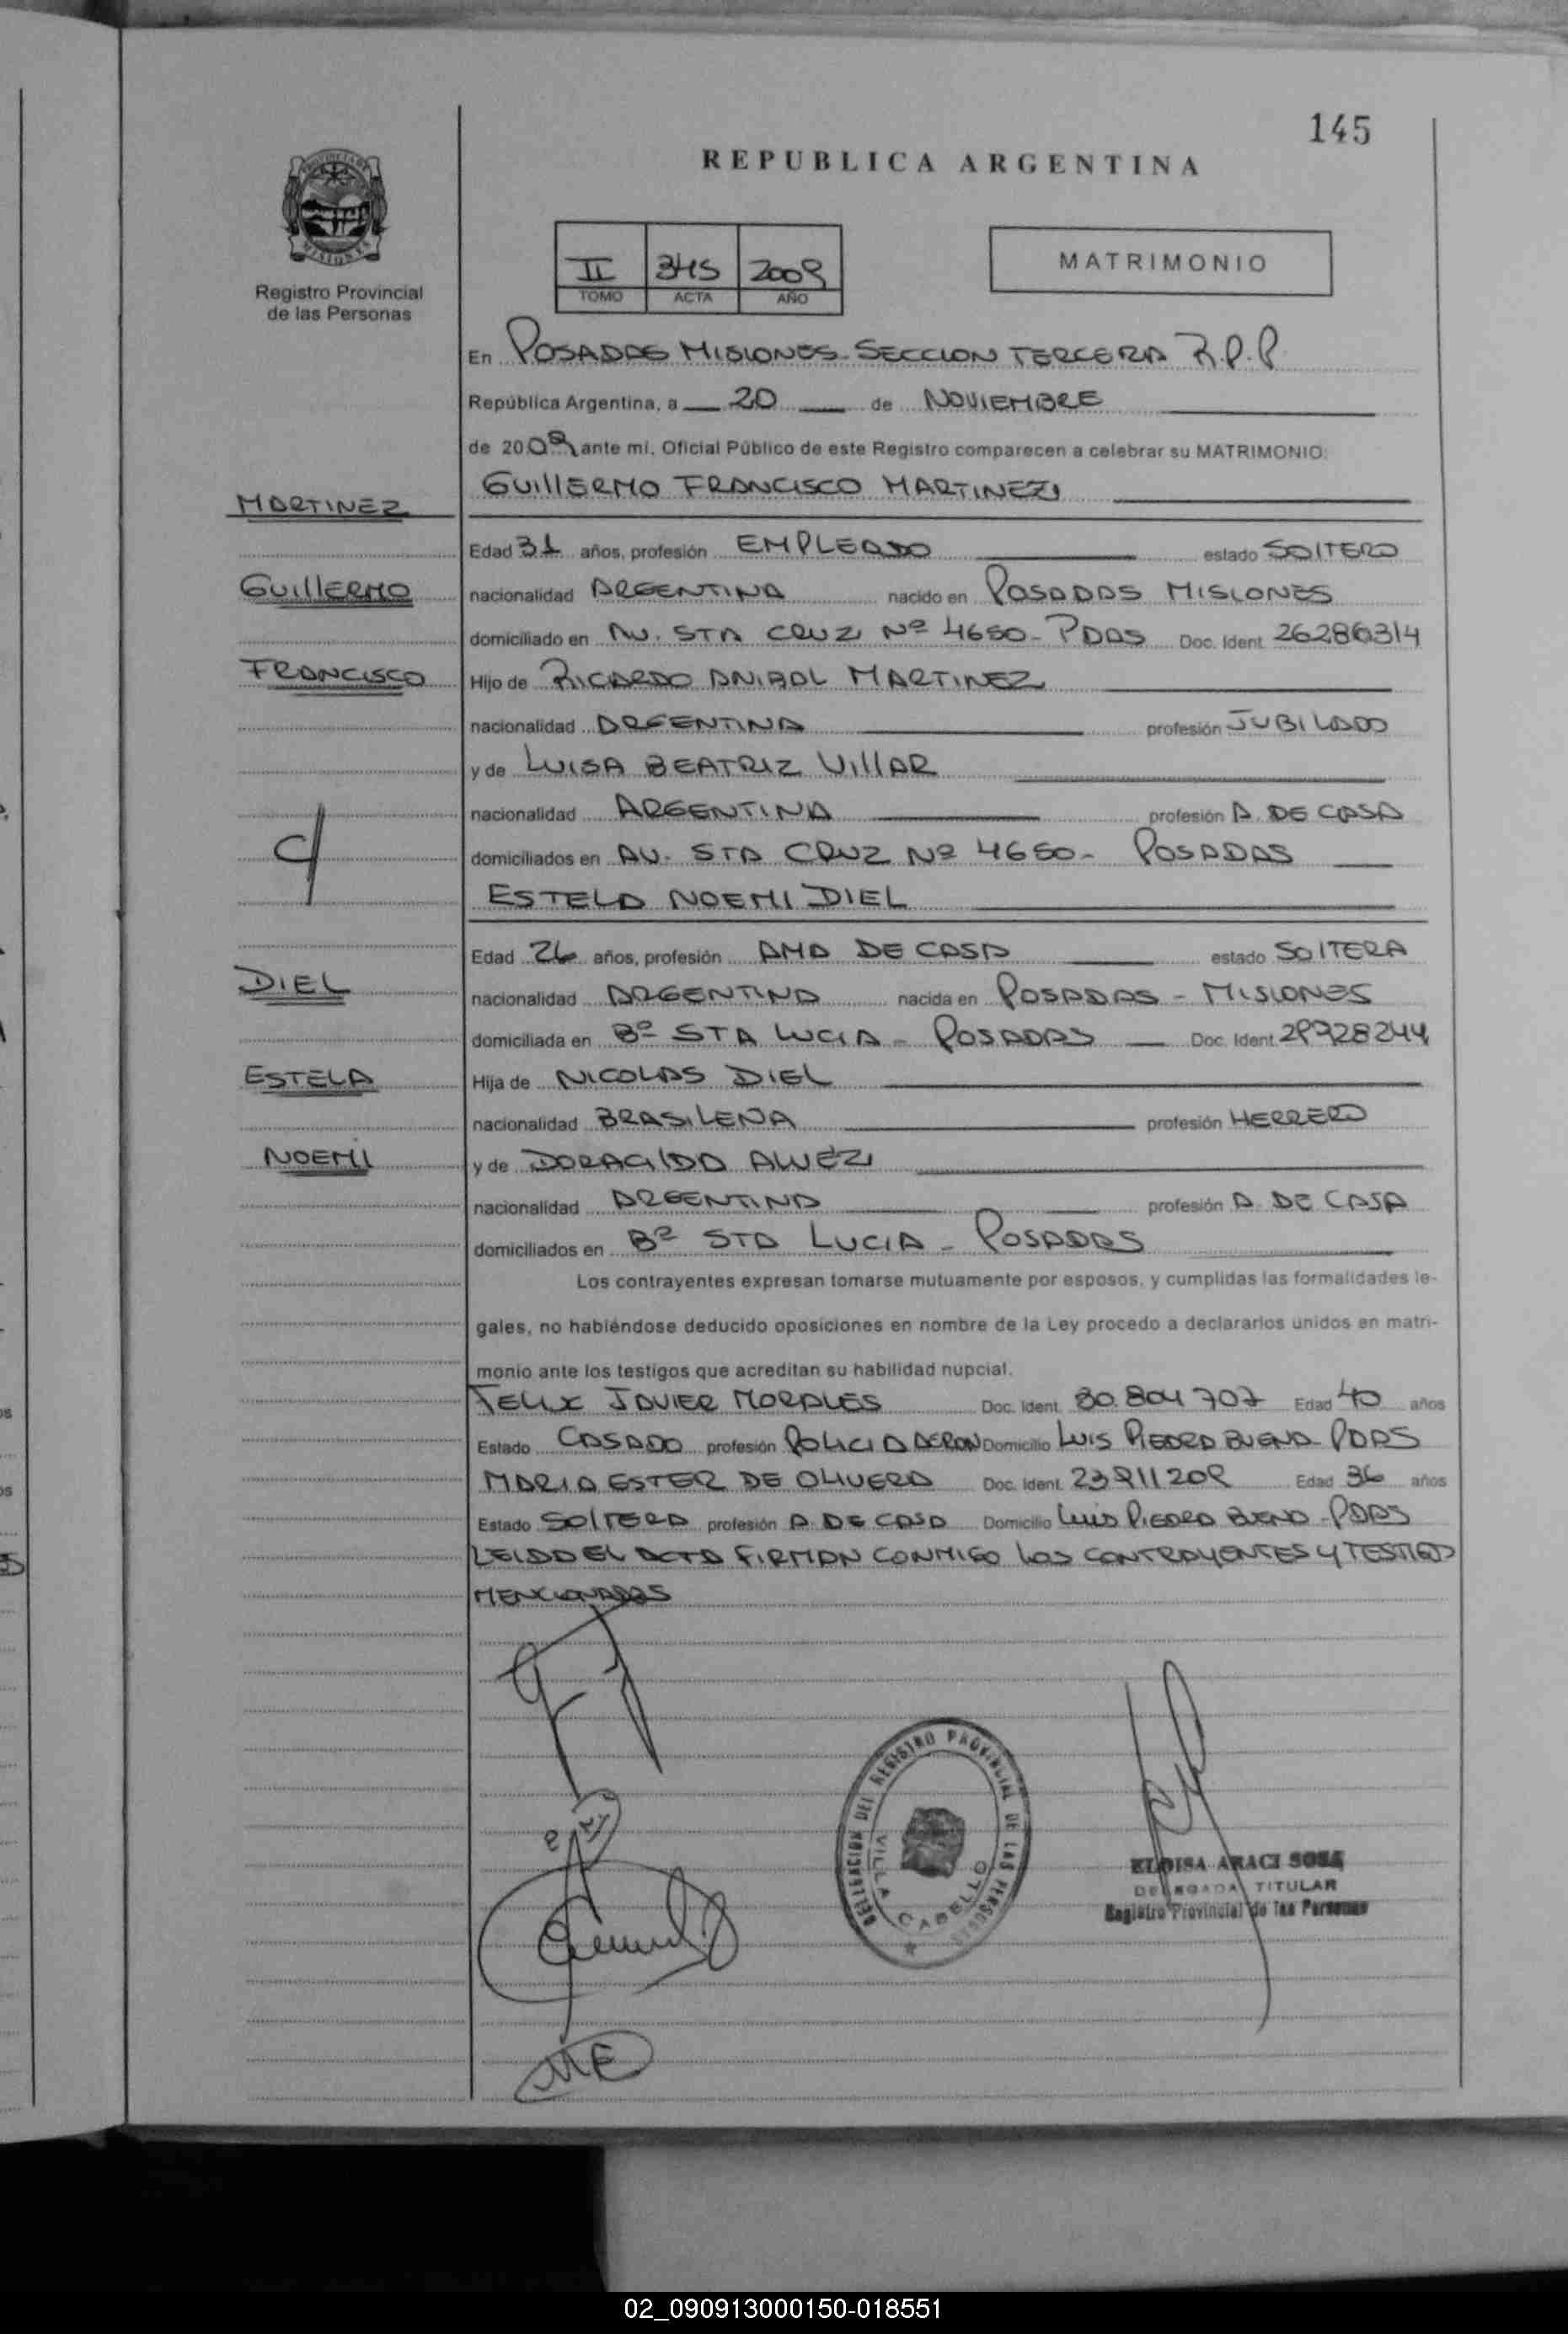 145
REPUBLICA ARGENTINA
PROVINCIA DE
MISIONES
Registro Provincial
de las Personas
II 345 2009
TOMO ACTA AÑO
MATRIMONIO
En POSADAS MISIONES - SECCION TERCERA R.P.P
República Argentina, a 20 de NOVIEMBRE
de 2009 ante mi, Oficial Público de este Registro comparecen a celebrar su MATRIMONIO:
GUILLERMO FRANCISCO MARTINEZ
MARTINEZ
Edad 31 años, profesión EMPLEADO estado SOLTERO
GUILLERMO
nacionalidad ARGENTINA nacido en POSADAS MISIONES
domiciliado en AV. STA CRUZ Nº 4650 - PDAS Doc. Ident. 26286314
FRANCISCO
Hijo de RICARDO ANIBAL MARTINEZ
nacionalidad ARGENTINA profesión JUBILADO
y de LUISA BEATRIZ VILLAR
nacionalidad ARGENTINA profesión A. DE CASA
C/
domiciliados en AV. STA CRUZ Nº 4650 - POSADAS
ESTELA NOEMI DIEL
Edad 26 años, profesión AMA DE CASA estado SOLTERA
DIEL
nacionalidad ARGENTINA nacida en POSADAS - MISIONES
domiciliada en Bº STA LUCIA - POSADAS Doc. Ident. 29728244
ESTELA
Hija de NICOLAS DIEL
nacionalidad BRASILENA profesión HERRERO
NOEMI
y de DORACILDA ALVEZ
nacionalidad ARGENTINA profesión A. DE CASA
domiciliados en Bº STA LUCIA - POSADAS
Los contrayentes expresan tomarse mutuamente por esposos, y cumplidas las formalidades le-
gales, no habiéndose deducido oposiciones en nombre de la Ley procedo a declararlos unidos en matri-
monio ante los testigos que acreditan su habilidad nupcial.
FELIX JAVIER MORALES Doc. Ident. 30.804707 Edad 40 años
Estado CASADO profesión POLICIA Domicilio LUIS PIEDRA BUENA PDAS
MARIA ESTER DE OLIVERA Doc. Ident. 23911209 Edad 36 años
Estado SOLTERA profesión A. DE CASA Domicilio LUIS PIEDRA BUENA - PDAS
LEIDO EL ACTA FIRMAN CONMIGO LOS CONTRAYENTES Y TESTIGO
MENCIONADOS
DELEGACION DEL REGISTRO PROVINCIAL DE LAS PERSONAS
VILLA CABELLO
ELOISA ARACI SOSA
DELEGADA TITULAR
Registro Provincial de las Personas
ME
02_090913000150-018551